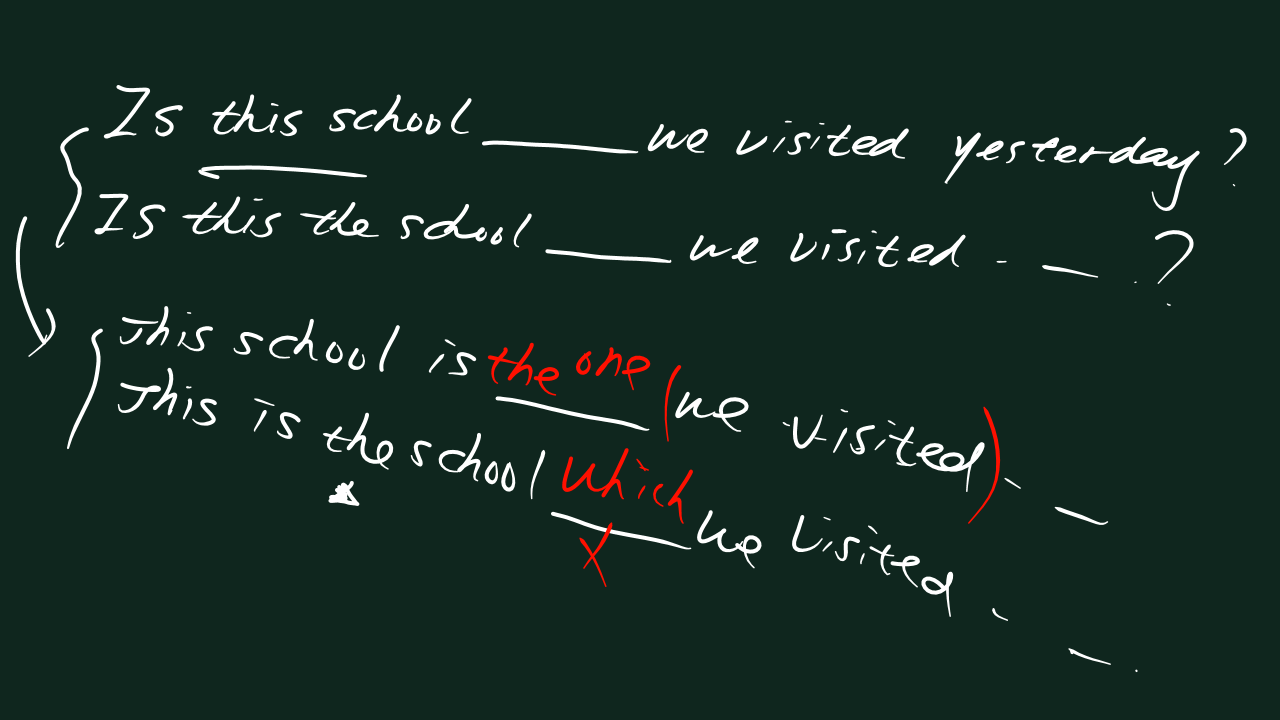 Is this school ______ we visited yesterday?
Is this the school _____ we visited . — . ?
This school is the one (we visited) . —
This is the school which we visited . — .
x